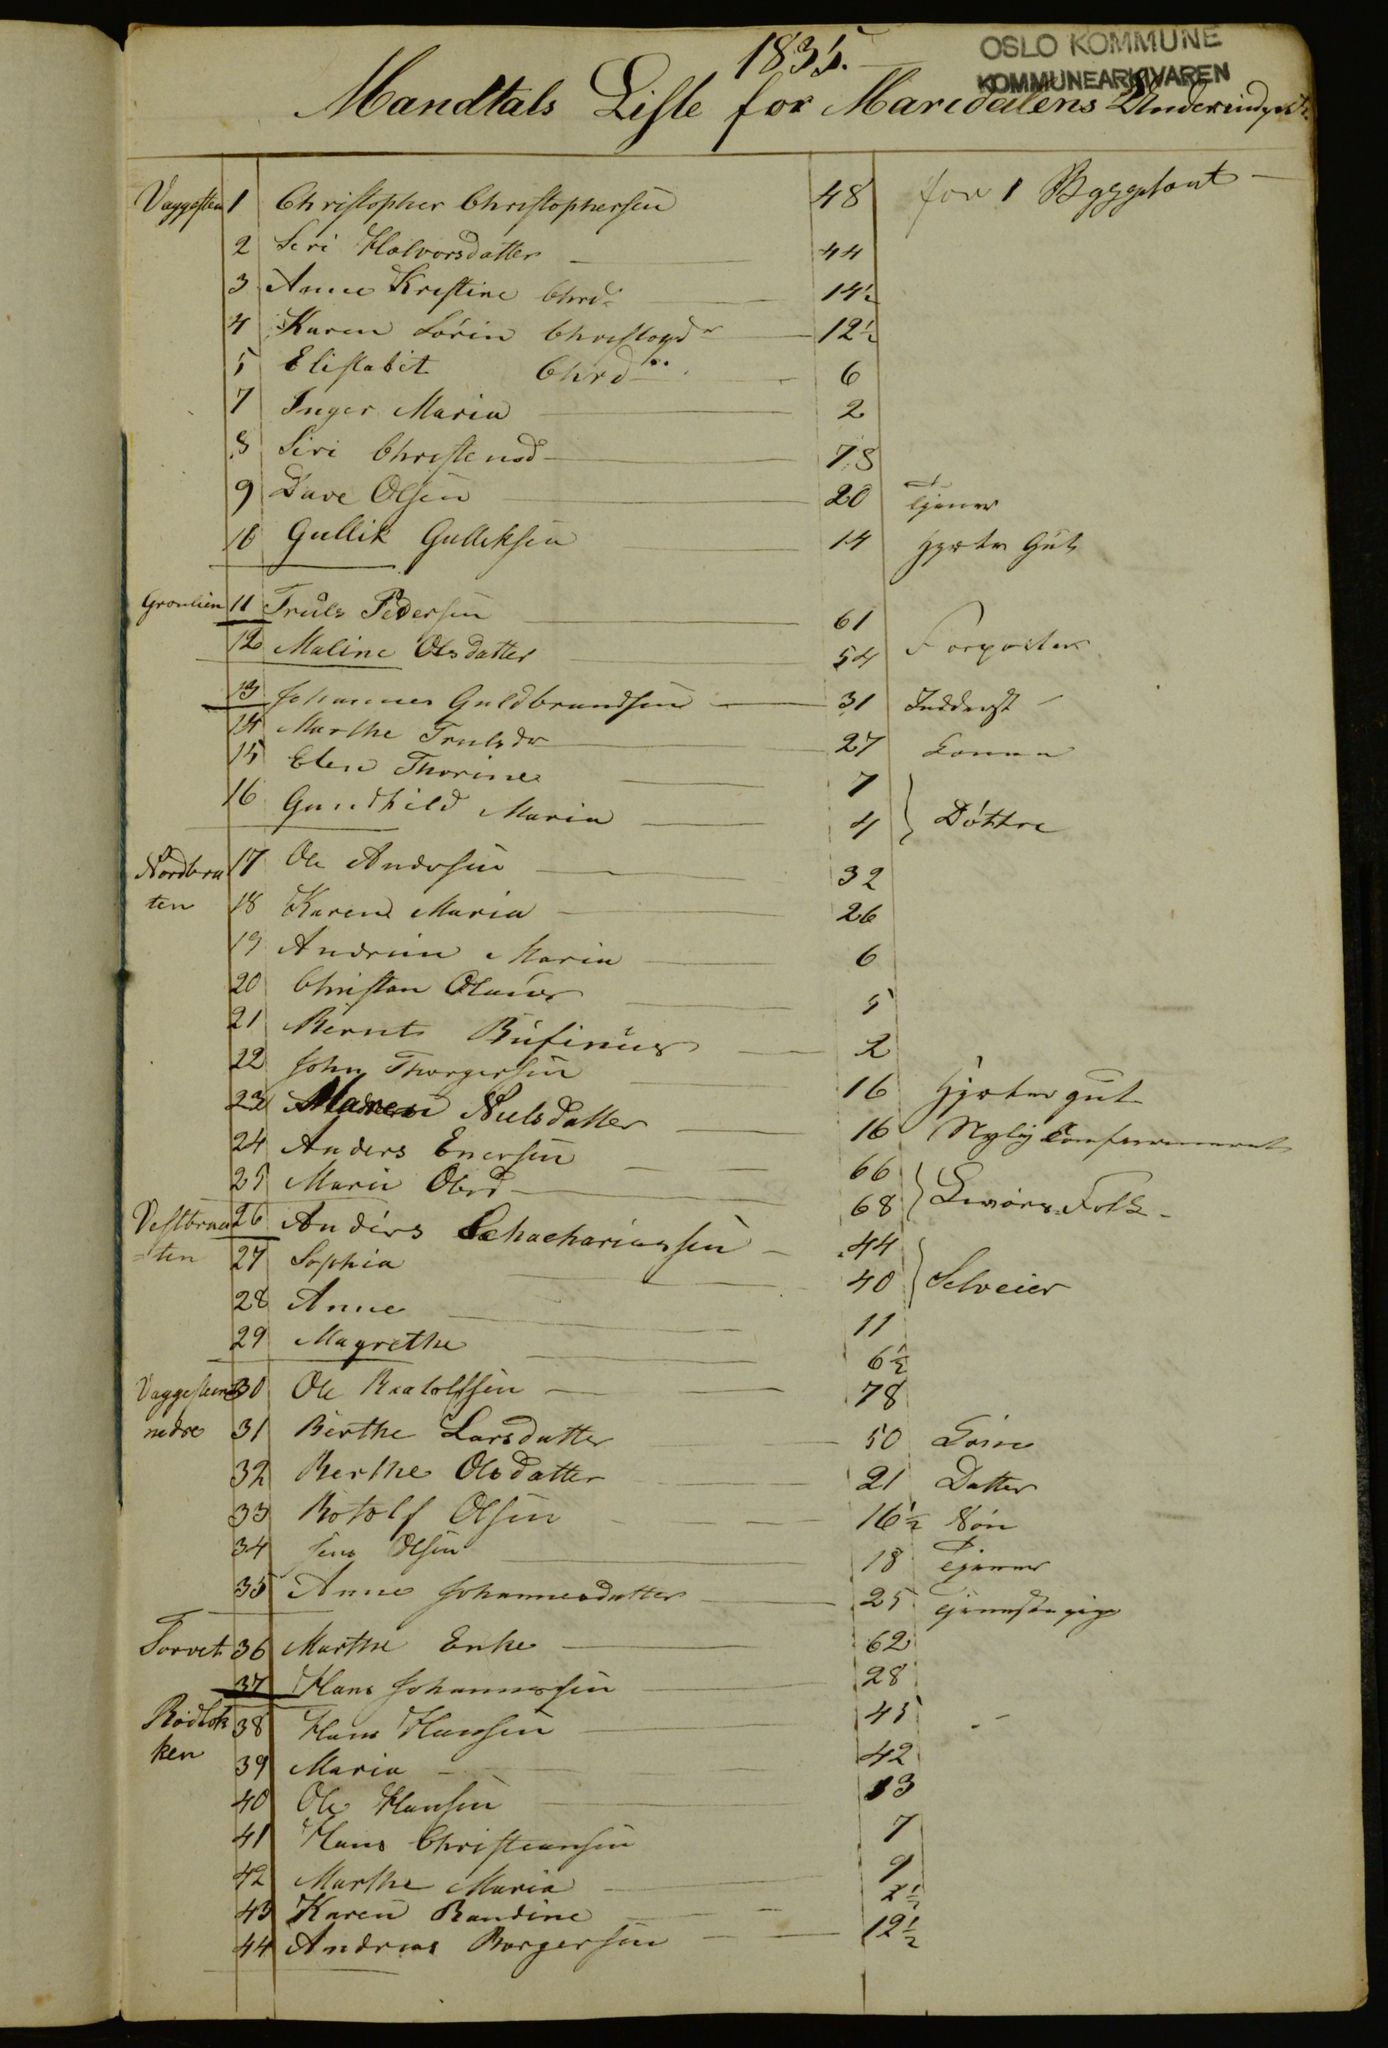 1835.
OSLO KOMMUNE
KOMMUNEARKIVAREN
Mandtals Liste for Maredalens
Vaggesten 1 Christopher Christophersen 48 for 1 Byggsaat
2 Siri Halvorsdatter 44
3 Anne Kristine Chrd. 14½
4 Karen Sørin Christopdr 12½
5 Elisabit Chrd 6
7 Inger Maria 2
8 Siri Christensd 78
9 Dave Olsen 20 Tjener
10 Gullik Gulliksen 14 Hyrte Gut
Gronlien 11 Truls Pedersen 61
12 Maline Olsdatter 54 Forpagter
13 Johannes Guldbrandsen 31 Indderst
14 Marthe Trulsdr 27 konna
15 Elen Thorine 7
16 Gundhild Maria 4 } Døttre
Nordbra 17 Ole Andersen 32
ten 18 Karen Maria 26
19 Andrine Maria 6
20 Christan Olaus 5
21 Bernt Rufinus 2
22 John Thorgersen 16 Hyrtergut
23 Maren Nielsdatter 16 Nylig Confirmeret
24 Anders Enersen 66
25 Marie Olsd 68 } Livørs Folk
Vestbraa 26 Anders Schachariassen 44
=ten 27 Sophia 40 } Selveier
28 Anne 11
29 Magrethe 6½
Vaggesten 30 Ole Raatolfsen 78
nedre 31 Birthe Larsdatter 50 Kone
32 Berthe Olsdatter 21 Datter
33 Rotolf Olsen 16½ Søn
34 Jens Olsen 18 Tjener
35 Anne Johannesdatter 25 Tjenestepige
Torvet 36 Marthe Enke 62
37 Hans Johannessen 28
Rødbok 38 Hans Hansen 45
ken 39 Maria 42
40 Ole Hansen 13
41 Hans Christiansen 7
42 Marthe Maria 9
43 Karen Randine 2½
44 Andreas Borgersen 12½